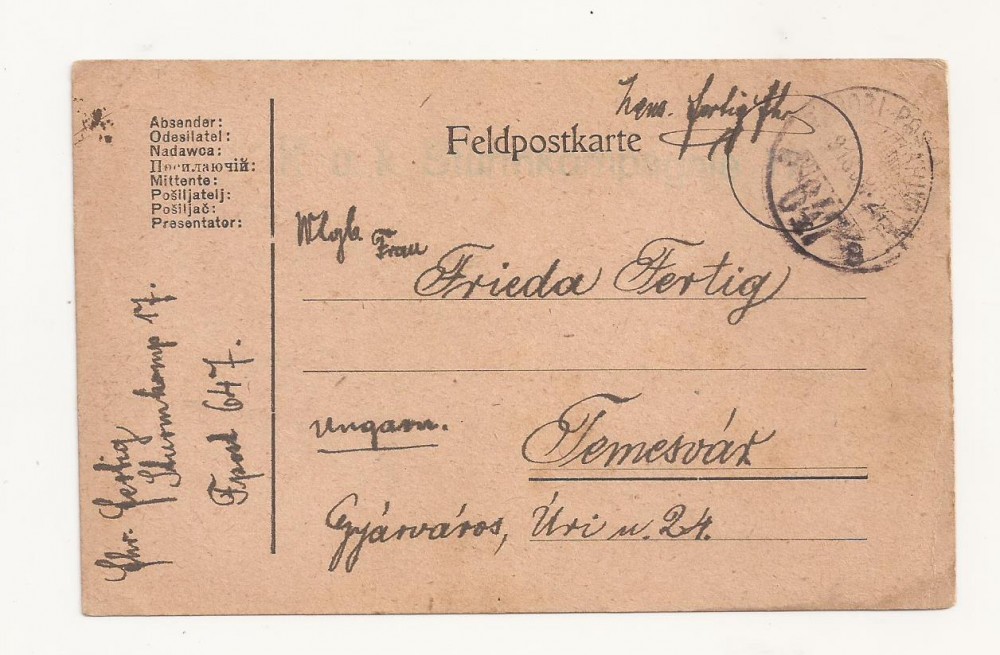 Absender:
Odesílatel:
Nadawca:
Посилаючій:
Mittente:
Pošiljatelj:
Pošiljač:
Presentator:
Feldpostkarte
Zens. Fertig
Wlgb. Frau
Frieda Fertig
Ungarn.
Temesvár
Gyárváros, Úri u. 24.
Chr. Fertig
Sturmkomp 17.
Fpost 647.